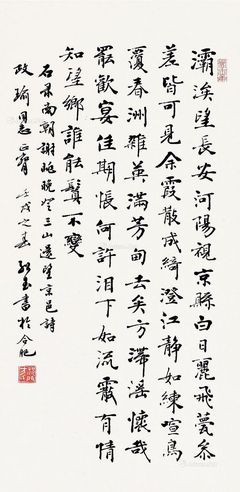 灞涘望長安河陽視京縣白日麗飛甍參
差皆可見余霞散成綺澄江靜如練喧鳥
覆春洲雜英滿芳甸去矣方滯淫懷哉
罷歡宴佳期悵何許泪下如流霰有情
知望鄉誰能鬒不變
右录南朝謝朓晚登三山還望京邑詩
政瑜同志正 壬戌之春 書於合肥